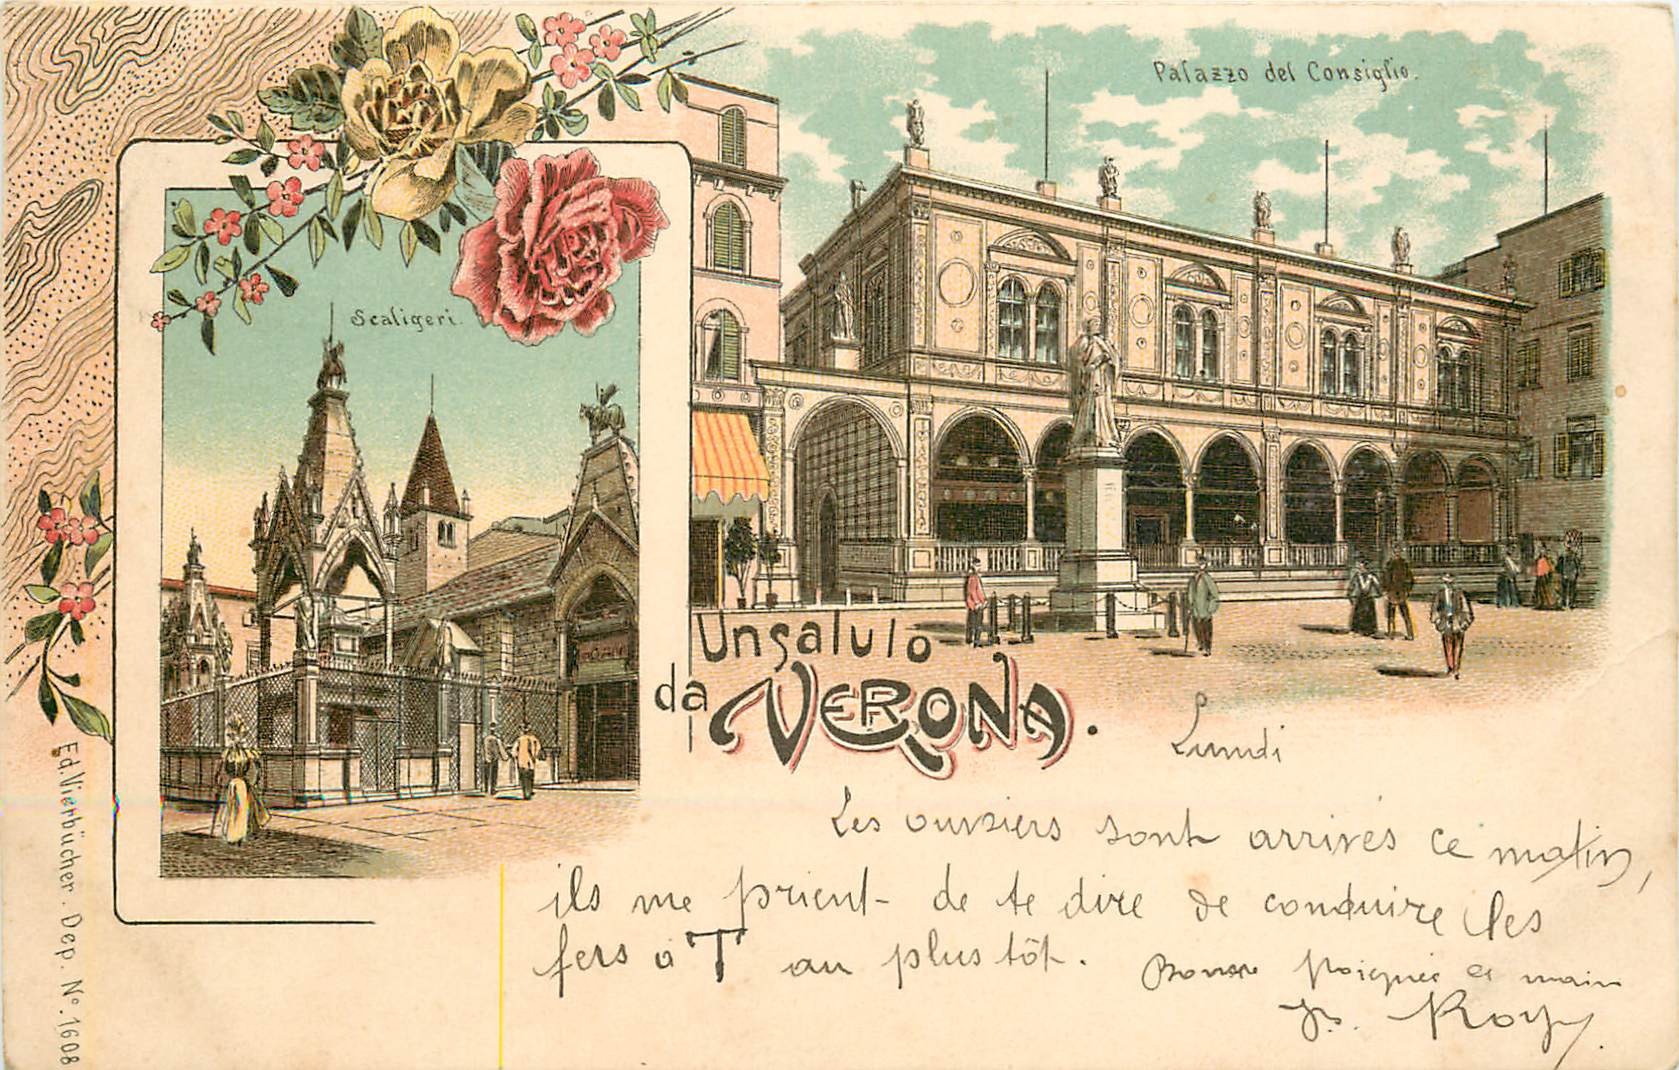 Palazzo del Consiglio.
Scaligeri.
Un salulo
da VERONA.
Lundi
Les ouvriers sont arrivés ce matin,
ils me prient de te dire de conduire les
fers à T au plus tôt. Bonne poignée de main
Roy.
Ed. Vierbücher. Dep. N°. 1608